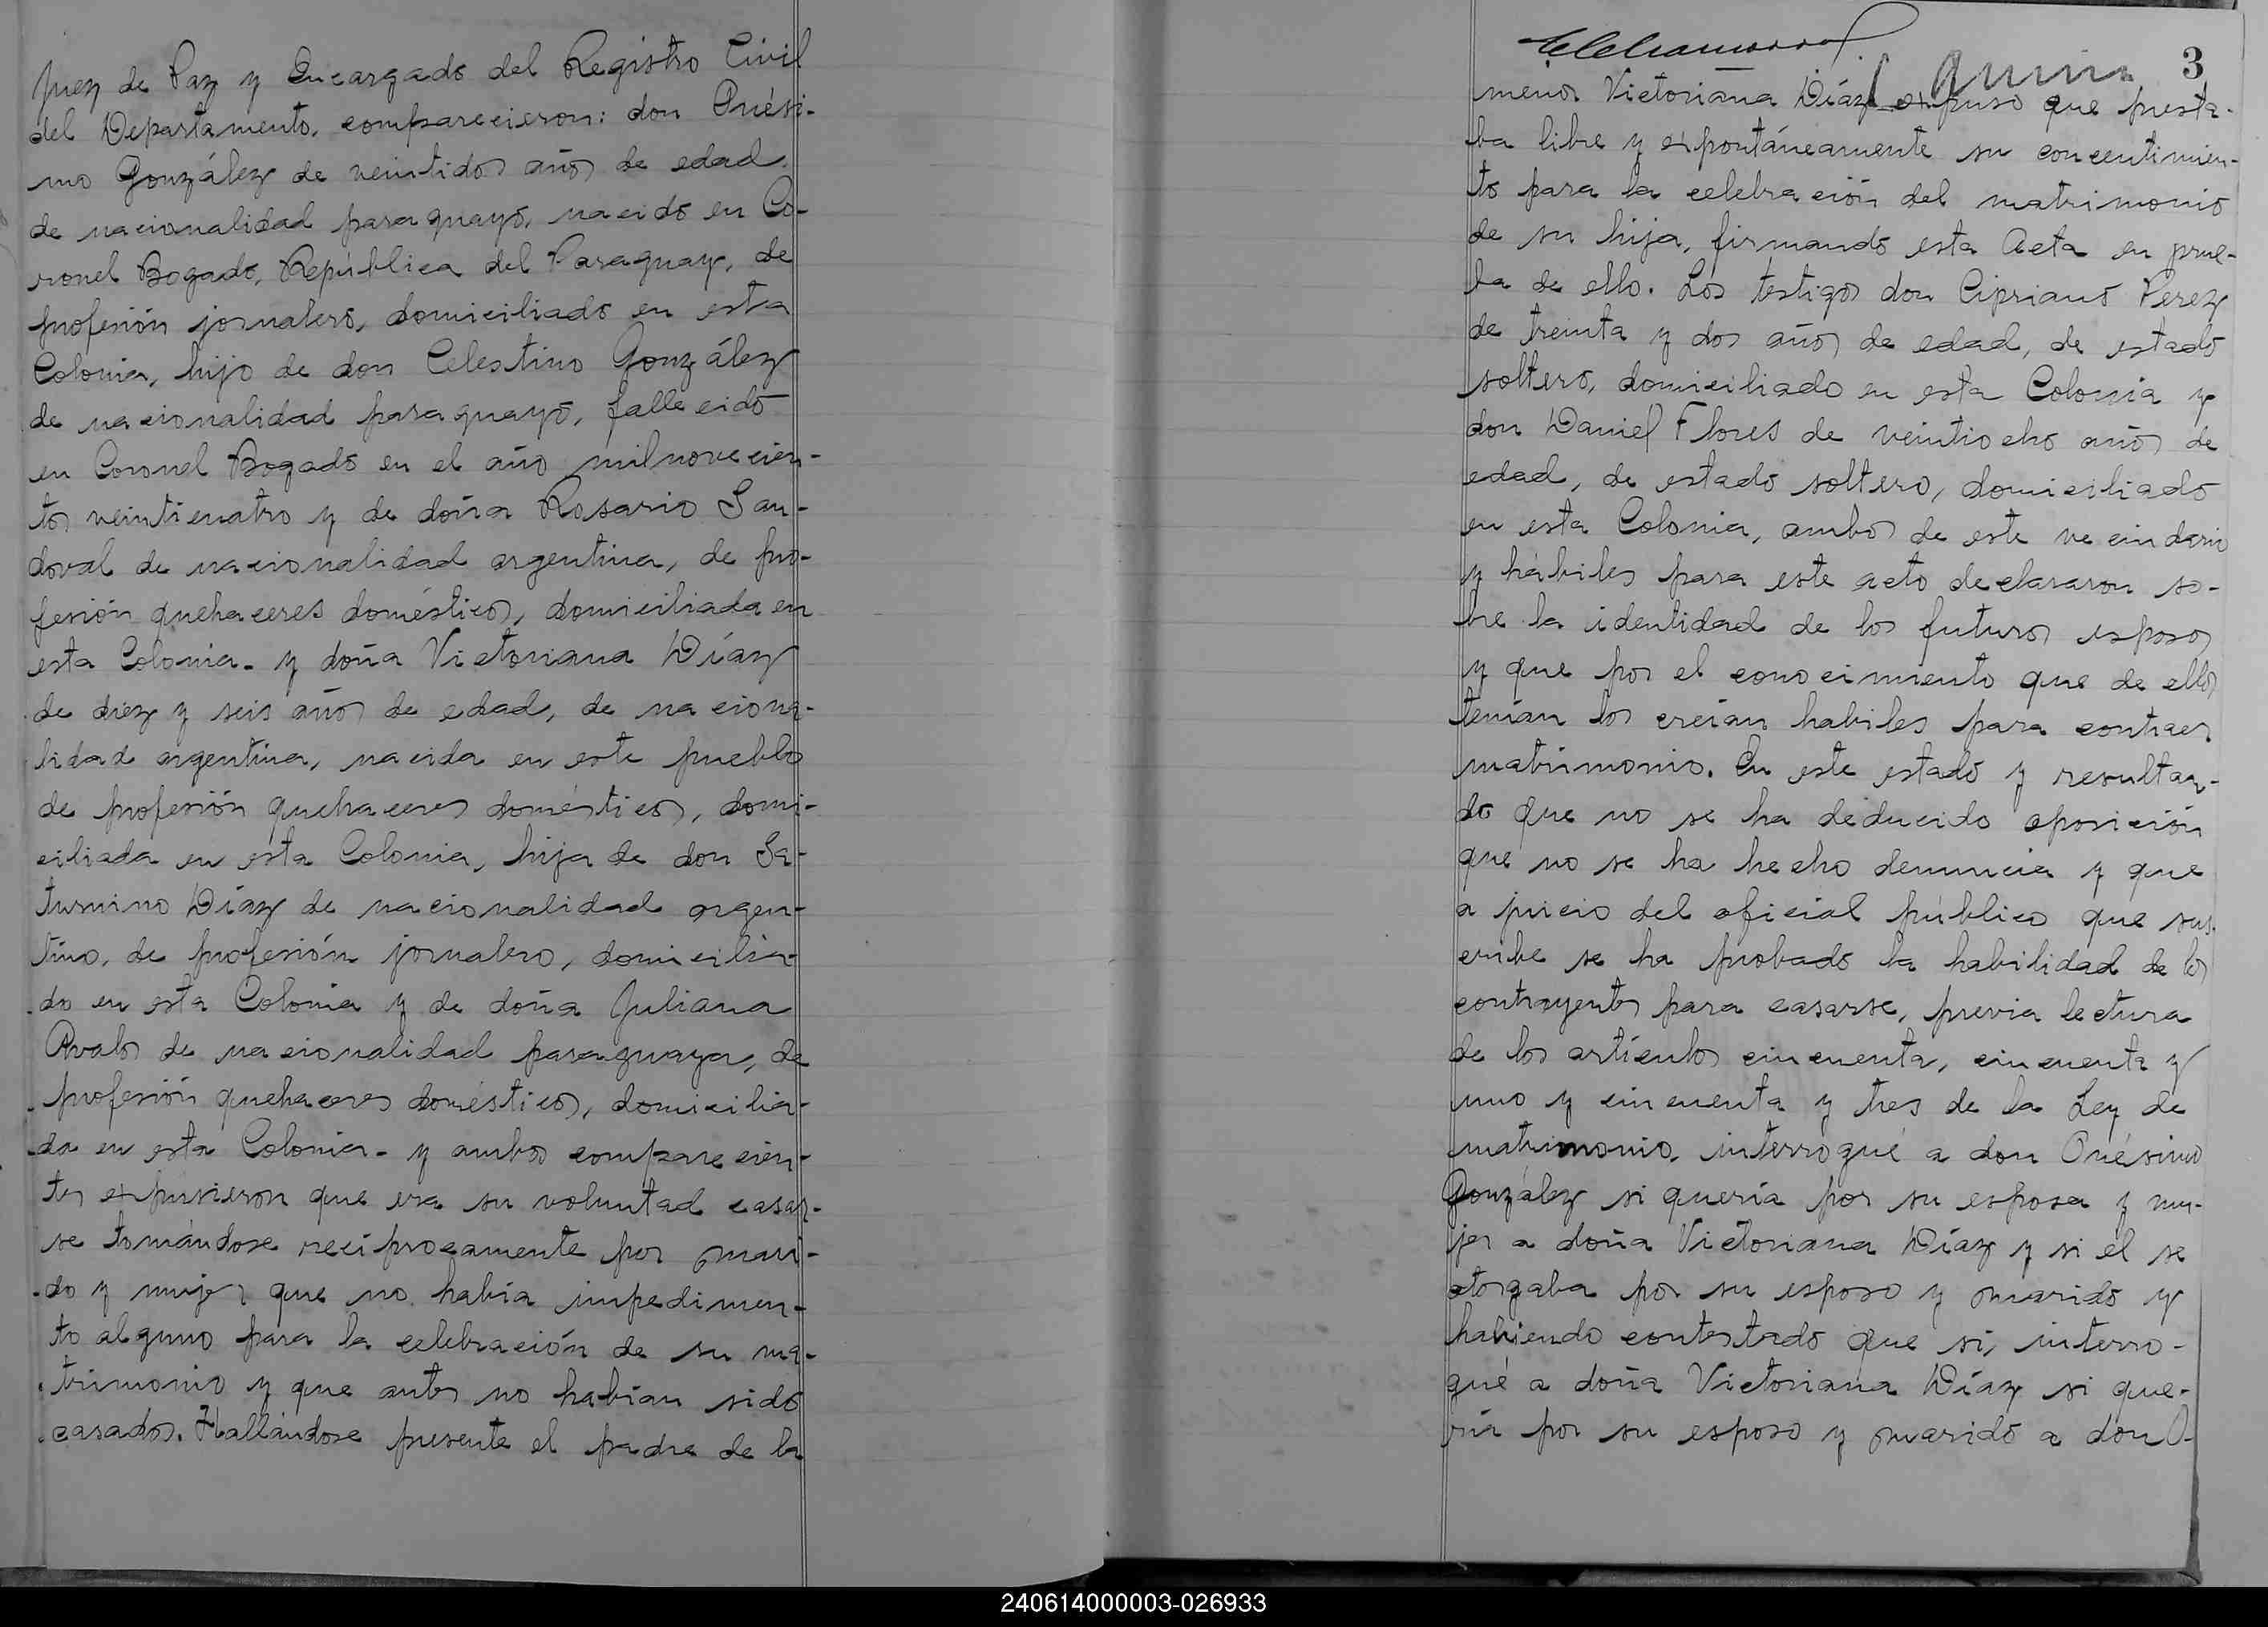 Juez de Paz y Encargado del Registro Civil
del Departamento, comparecieron: don Onési-
mo González de veintidos años de edad,
de nacionalidad paraguayo, nacido en Co-
ronel Bogado, República del Paraguay, de
profesión jornalero, domiciliado en esta
Colonia, hijo de don Celestino González
de nacionalidad paraguayo, fallecido
en Coronel Bogado en el año milnovecien-
tos veinticuatro y de doña Rosario San-
doval de nacionalidad argentina, de pro-
fesión quehaceres domésticos, domiciliada en
esta Colonia. y doña Victoriana Díaz
de diez y seis años de edad, de naciona-
lidad argentina, nacida en este pueblo
de profesión quehaceres domésticos, domi-
ciliada en esta Colonia, hija de don Sa-
turnino Díaz de nacionalidad argen-
tino, de profesión jornalero, domicilia-
do en esta Colonia y de doña Juliana
Avalos de nacionalidad paraguaya, de
profesión quehaceres domésticos, domicilia-
da en esta Colonia. y ambos comparecien-
tes expusieron que era su voluntad casar-
se tomándose recíprocamente por mari-
do y mujer que no había impedimen-
to alguno para la celebración de su ma-
trimonio y que antes no habían sido
casados. Hallándose presente el padre de la
3
menor Victoriana Díaz expuso que presta-
ba libre y expontáneamente su concentimien-
to para la celebración del matrimonio
de su hija, firmando esta Acta en prue-
ba de ello. Los testigos don Cipriano Perez
de treinta y dos años de edad, de estado
soltero, domiciliado en esta Colonia y
don Daniel Flores de veintiocho años de
edad, de estado soltero, domiciliado
en esta Colonia, ambos de este vecindario
y hábiles para este acto declararon so-
bre la identidad de los futuros esposos
y que por el conocimiento que de ellos
tenían los creían habiles para contraer
matrimonio. En este estado y resultan-
do que no se ha deducido oposición
que no se ha hecho denuncia y que
a juicio del oficial público que sus-
cribe se ha probado la habilidad de los
contrayentes para casarse, previa lectura
de los artículos cincuenta, cincuenta y
uno y cincuenta y tres de la Ley de
matrimonio, interrogué a don Onésimo
González si quería por su esposa y mu-
jer a doña Victoriana Díaz y si el se
otorgaba por su esposo y marido y
habiendo contestado que si, interro-
gué a doña Victoriana Díaz si que-
ría por su esposo y marido a don O-
240614000003-026933